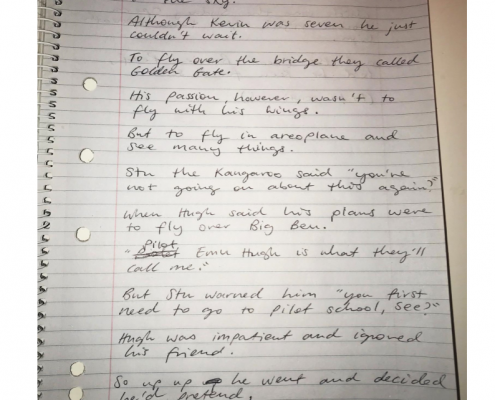 the sky.
Although Kevin was seven he just
couldn't wait.
To fly over the bridge they called
Golden Gate.
His passion, however, wasn't to
fly with his wings.
But to fly in areoplane and
see many things.
Stu the Kangaroo said "you're
not going on about this again?"
When Hugh said his plans were
to fly over Big Ben.
"Pilot Emu Hugh is what they'll
call me."
But Stu warned him "you first
need to go to pilot school, see?"
Hugh was impatient and ignored
his friend.
So up up he went and decided
he'd pretend.